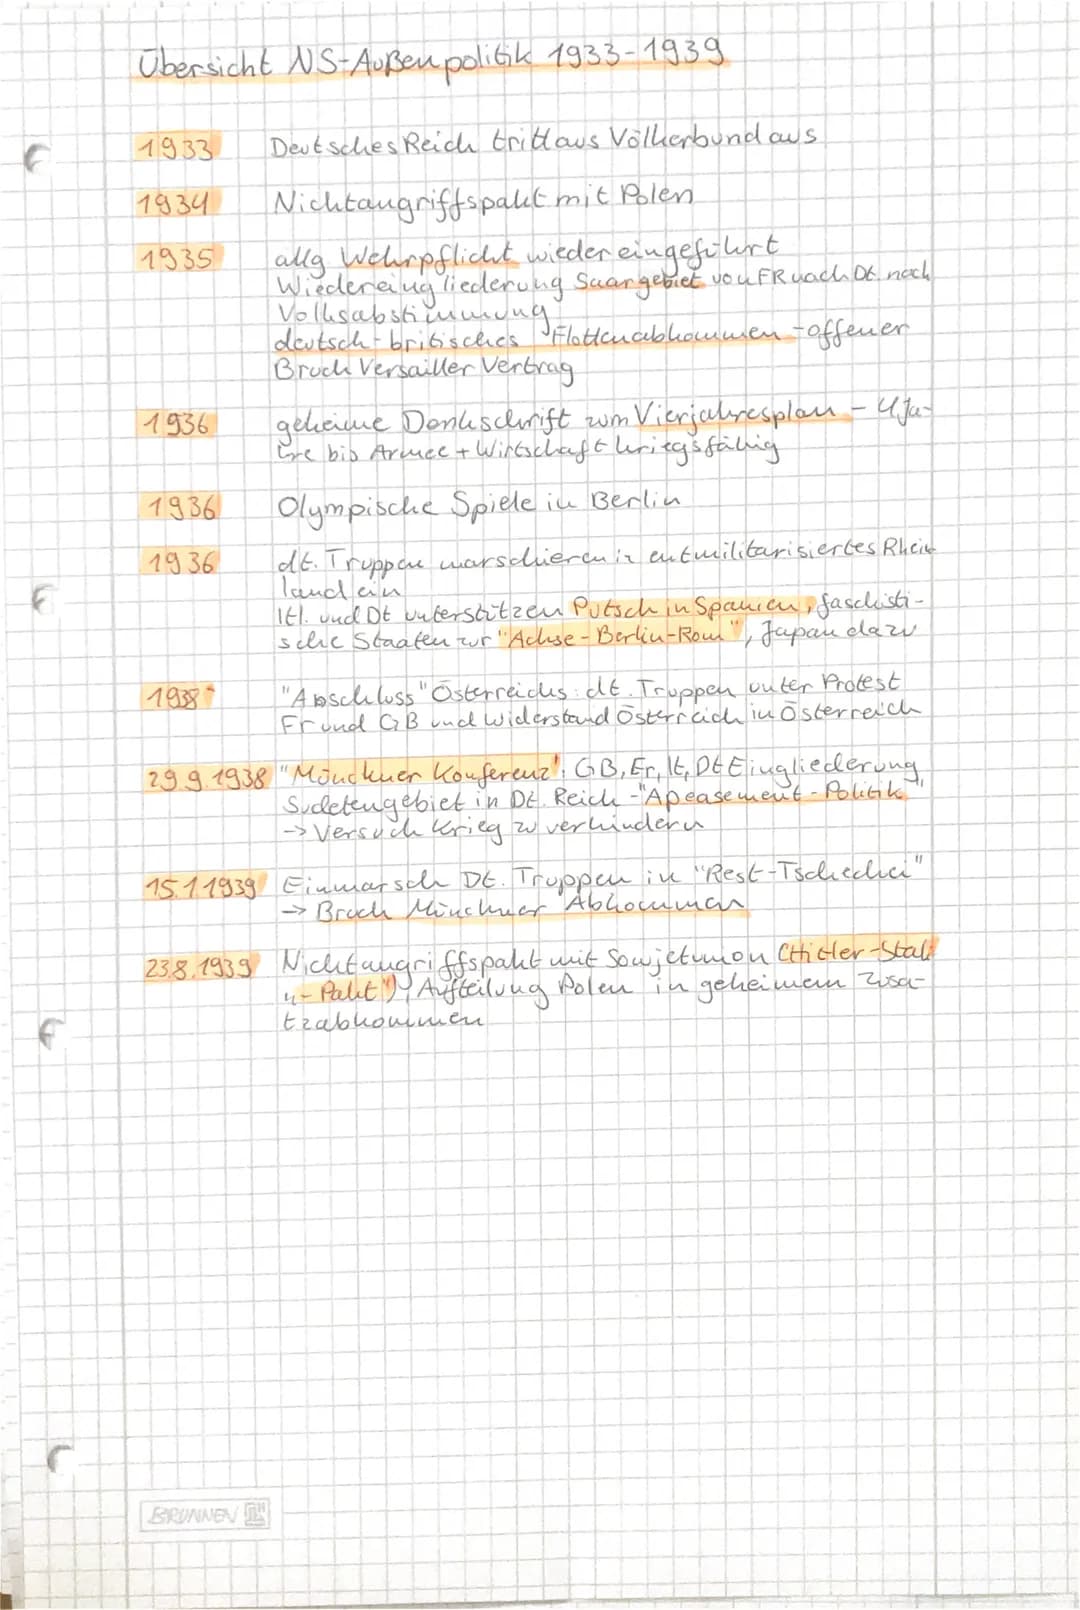 Übersicht NS-Außenpolitik 1933-1939
1933 Deutsches Reich tritt aus Völkerbund aus
1934 Nichtangriffspakt mit Polen
1935 allg Wehrpflicht wieder eingeführt
Wiedereingliederung Saargebiet von FR nach Dt. nach
Volksabstimmung
deutsch-britisches Flottenabkommen - offener
Bruch Versailler Vertrag
1936 geheime Denkschrift zum Vierjahresplan - 4 Ja-
hre bis Armee + Wirtschaft kriegsfähig
1936 Olympische Spiele in Berlin
1936 dt. Truppen marschieren in entmilitarisiertes Rhein
land ein
Itl. und Dt unterstützen Putsch in Spanien, faschisti-
sche Staaten zur "Achse-Berlin-Rom", Japan dazu
1938 "Anschluss" Österreichs: dt. Truppen unter Protest
Fr und GB und Widerstand Österreich in Österreich
29.9.1938 "Münchner Konferenz", GB, Fr, It, Dt Eingliederung
Sudetengebiet in Dt. Reich - "Apeasement-Politik"
-> Versuch Krieg zu verhindern
15.1.1939 Einmarsch Dt. Truppen in "Rest-Tschechei"
-> Bruch Münchner Abkommen
23.8.1939 Nichtangriffspakt mit Sowjetunion (Hitler-Stali
n-Pakt"), Aufteilung Polen in geheimem Zusa-
tzabkommen
BRUNNEN